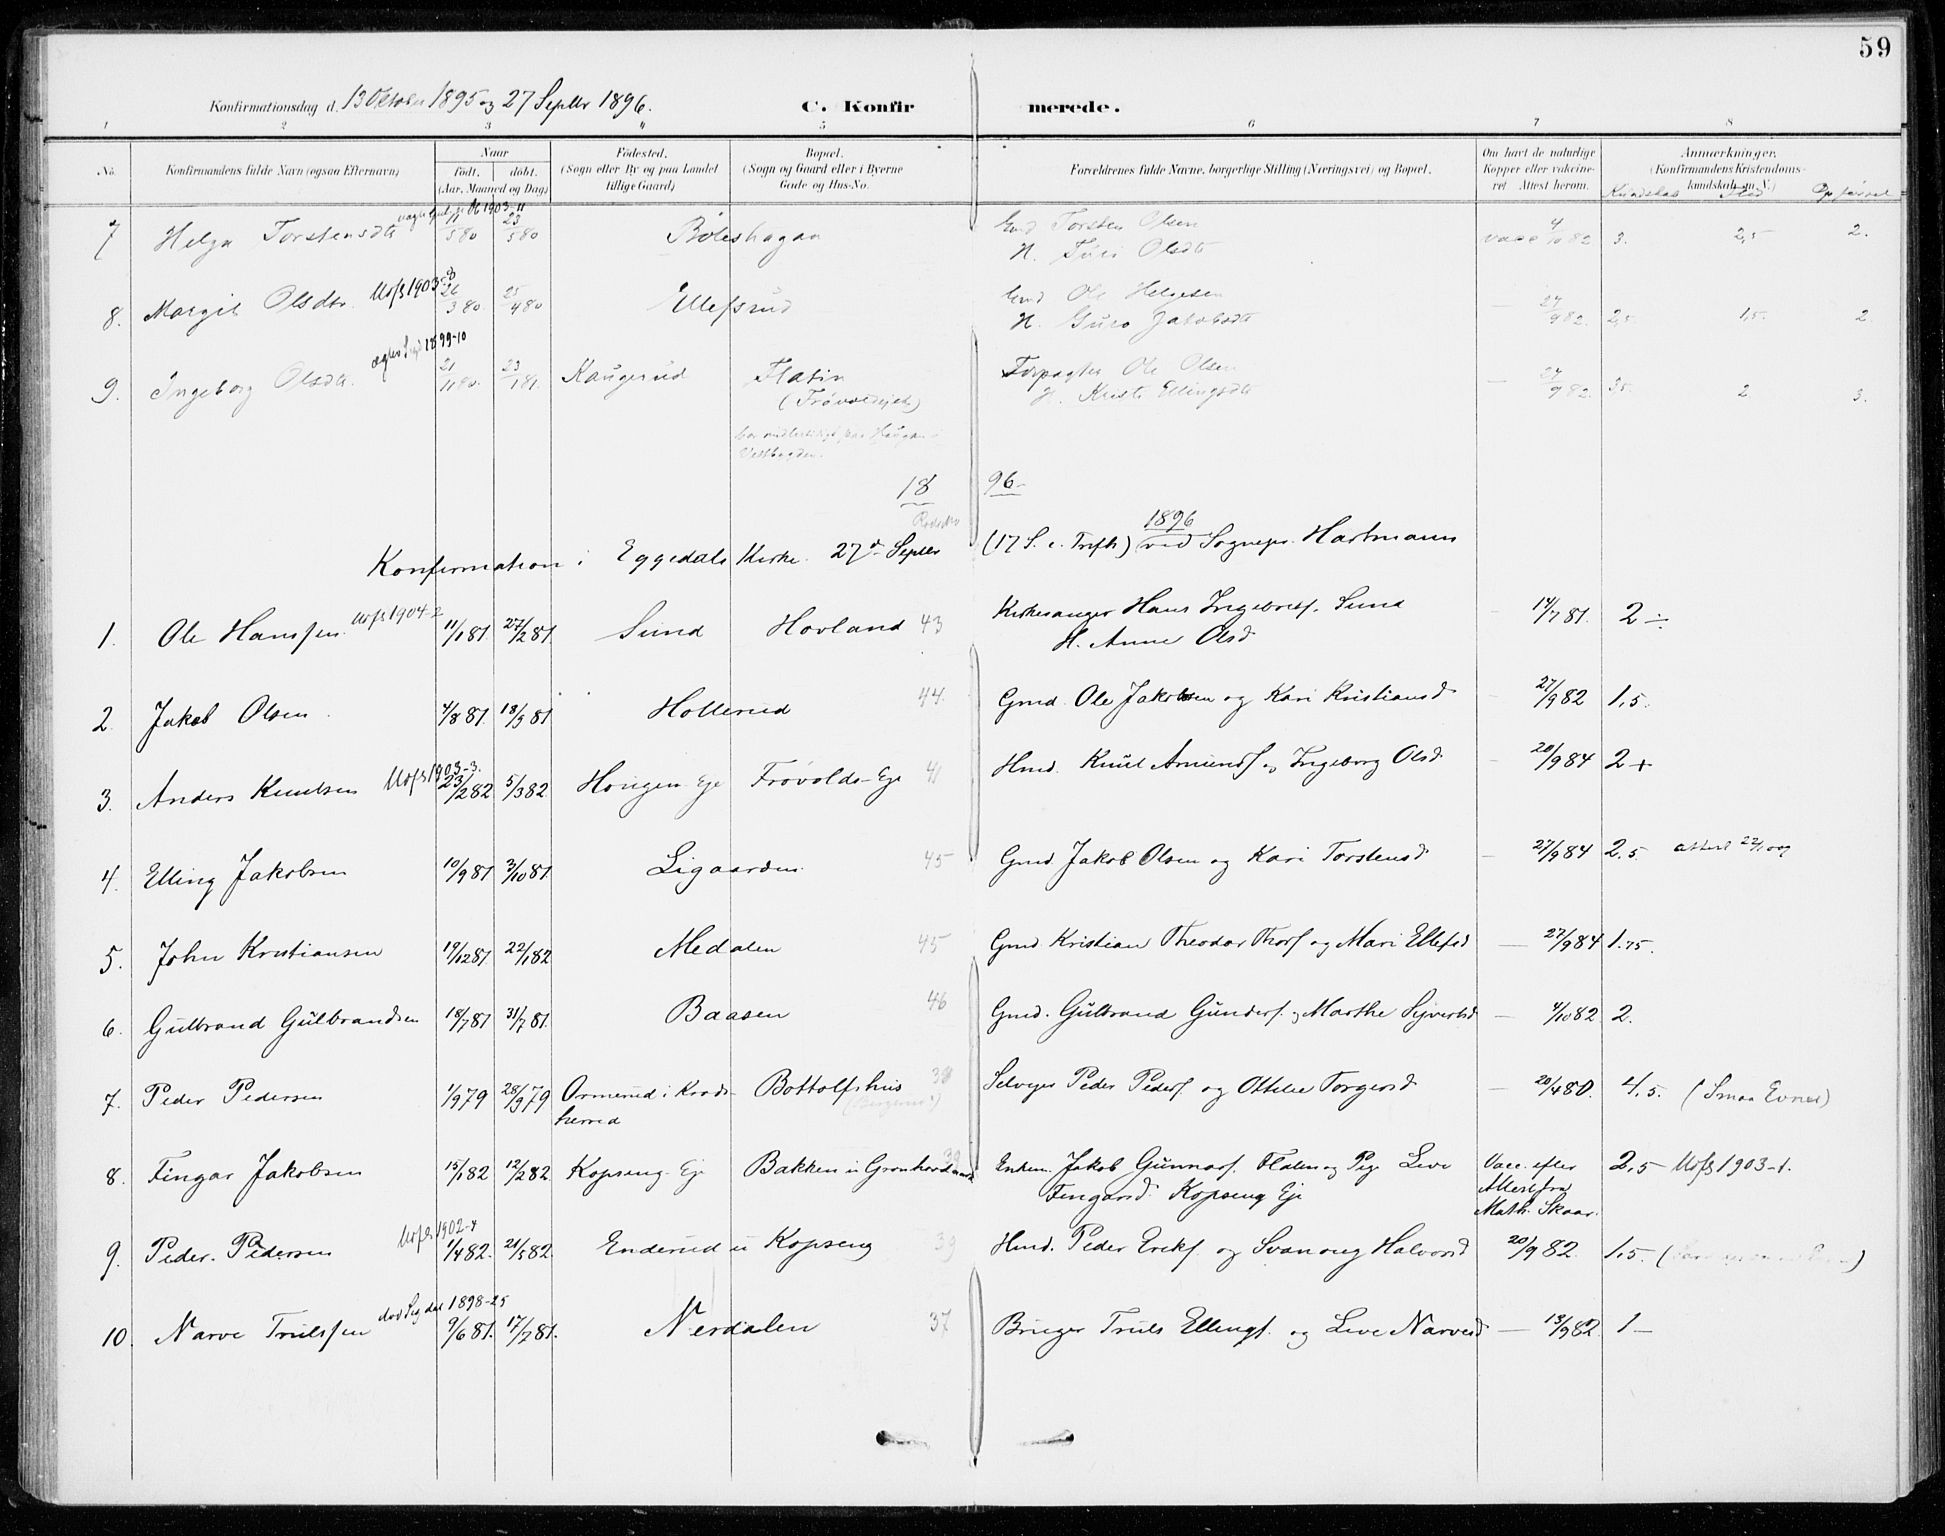 59
Konfirmationsdag d. 13 Oktober 1895 og 27 Septbr 1896. C. Konfirmerede.
1 2 3 4 5 6 7 8
No. Konfirmandens fulde Navn (ogsaa Efternavn) Naar født. døbt. (Aar, Maaned og Dag) Fødested. (Sogn eller By og paa Landet tillige Gaard) Bopæl. (Sogn og Gaard eller i Byerne Gade og Hus-No. Forældrenes fulde Navne, borgerlige Stilling (Næringsvei) og Bopæl. Om havt de naturlige Kopper eller vaccineret Attest herom. Anmærkninger. (Konfirmandens Kristendomskundskab m. V.)
Kundskab Flid Opførsel
7 Helga Torstensdtr 11/5 80 23/5 80 Böleshagan Gmd Torsten Olsen vacc 4/10 82 3. 2,5 2.
H. Turi Olsdtr
8. Margit Olsdtr. Udfl 1903-8 26/3 80 25/4 80 Ellefsrud Gmd Ole Helgesen — 27/9 82. 2,5 1,5. 2
H. Guro Jakobsdtr
9. Ingeborg Olsdtr. 1899-10 21/11 80. 23/1 81. Kaugerud Flatin Forpagter Ole Olsen — 27/9 82. 3,5. 2 3.
(Frövoldseje) H. Kristi Ellingsdtr
18 96-
Konfirmation i Eggedals Kirke. 27d Septbr (17 S. e. Trefh) 1896 ved Sognepr. Hartmann
1. Ole Hanssen. Udfl 1904-2 11/1 81. 27/2 81. Sund Hovland 43 Kirkesanger Hans Ingebrets. Sund — 14/7 81. 2 ÷
H. Anne Olsd
2. Jakob Olsen. 4/8 81. 18/9 81 Hollerud 44. Gmd. Ole Jakobsen og Kari Kristiansd — 27/9 82 1,5.
3. Anders Knudsen Udfl 1903-3. 23/2 82 5/3 82 Haugen Eje Frövolds-Eje 41 Hmd. Knud Amunds og Ingeborg Olsd — 20/9 84 2+
4. Elling Jakobsen 10/9 81 3/10 81. Ligaarden. 45 Gmd. Jakob Olsen og Kari Torstensd — 27/9 84 2.5. attest
5. John Kristiansen 19/12 81. 22/1 82 Medalen 45 Gmd. Kristian Theodor Thors og Mari Ellefsd — 27/9 84 1.75.
6. Gulbrand Gulbrandsen 18/7 81 31/7 81. Baasen 46 Gmd. Gulbrand Gunders. og Marthe Sjvertsd — 4/10 82 2.
7. Peder Pedersen 1/9 79 28/9 79 Ormerud i Krødsherred Bottolfshus 38 Selvejer Peder Peders og Ottilie Torgersd — 20/4 80. 4,5. (Smaa Evner)
8. Fingar Jakobsen 15/1 82 12/2 82 Kopseng-Eje Bakken u Grønhovd 39 Enkem. Jakob Gunnars. Flaten og Pige Live Vacc. efter 2,5 Udfl 1903-1.
Fingarsd Kopseng Eje Attest fra Math. Skaar.
9. Peder Pedersen Udfl. 1902-4 1/4 82. 21/5 82. Enderud u Kopseng 39 Hmd. Peder Eriks. og Svanaug Halvorsd 20/9 82. 1,5.
10. Narve Trulssen død Sigdal 1898-25 9/6 81. 17/7 81. Nerdalen 37 Bruger Truls Ellings. og Live Narvesd — 13/9 82. 1 —